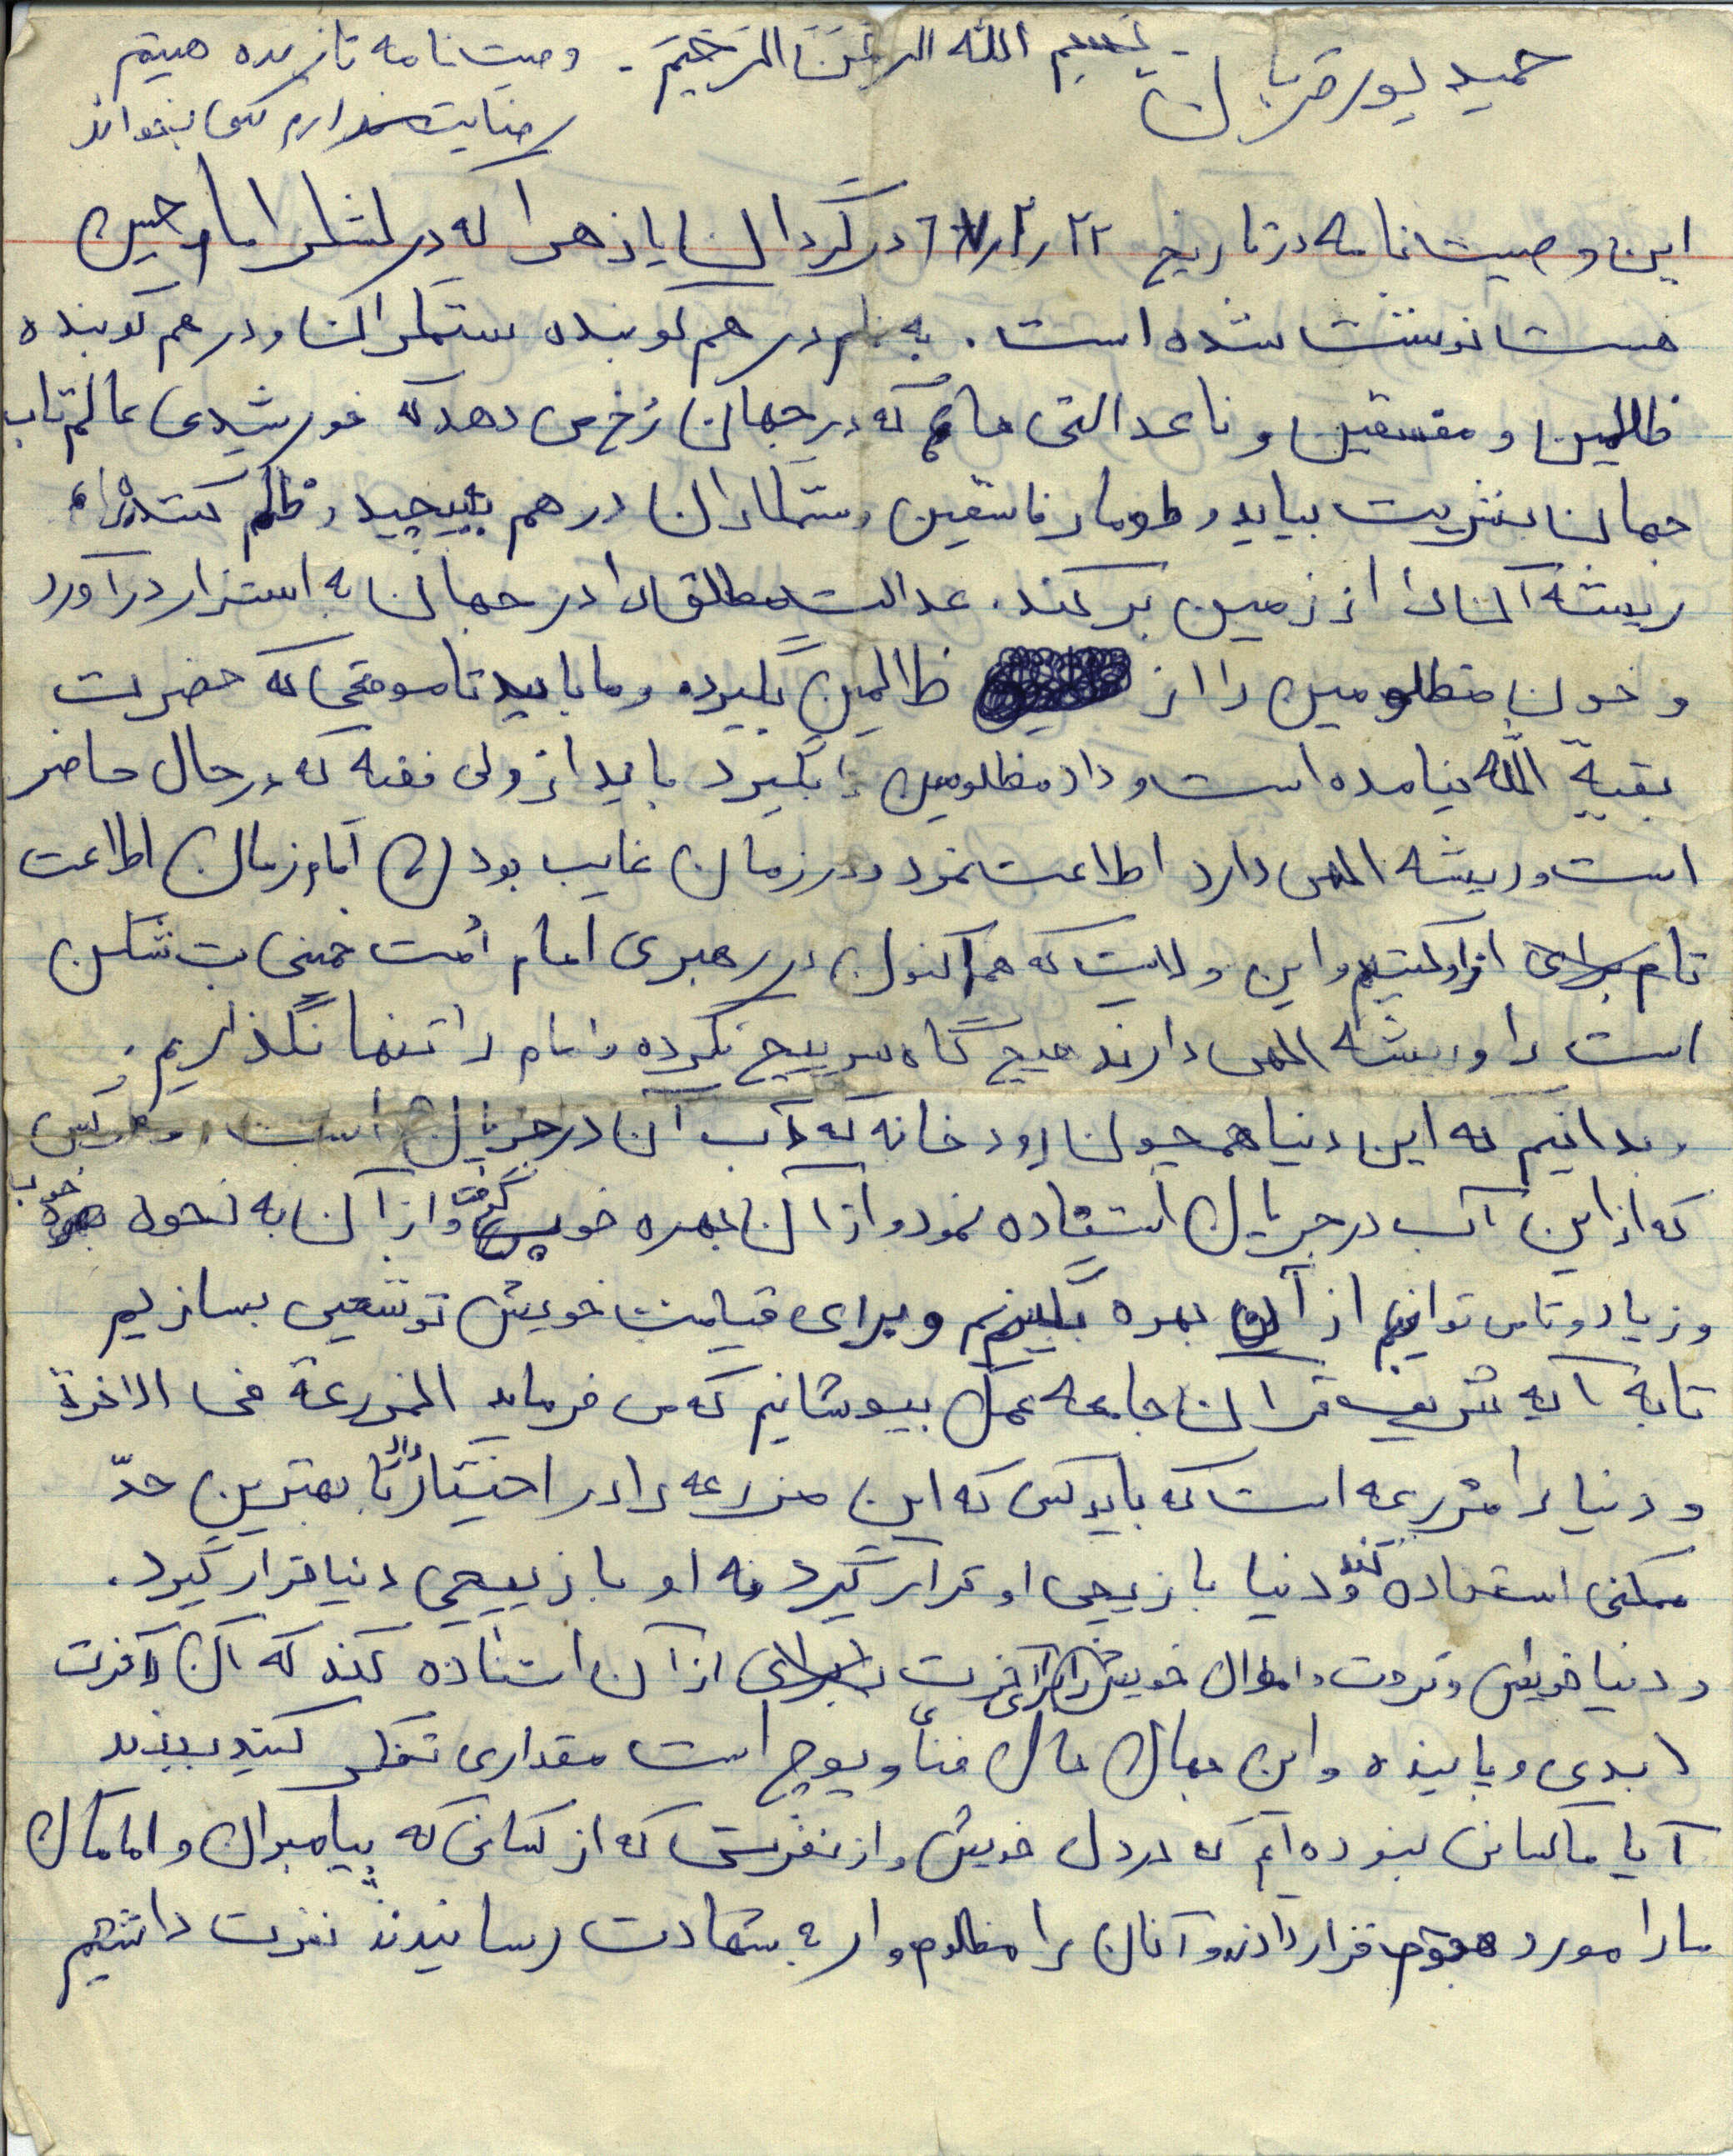 حمید پورقربان
بسم الله الرحمن الرحیم . وصیت نامه تا زنده هستم
رضایت ندارم کسی بخواند
این وصیت نامه در تاریخ ۲۲ در گردان یا زهرا که در لشکر امام حسین
هست نوشت شده است . به نام در هم کوبنده ستمگران و در هم کوبنده
ظالمین و مفسقین و ناعدالتی هائی که در جهان رخ می دهد که خورشیدی عالم تاب
جهان بشریت بیاید و طومار فاسقین و ستمکاران در هم بپیچید و ظلم کننده
ریشه آنان را از زمین برکند . عدالت مطلق را در جهان به استزار درآورد
و خون مظلومین را از ظالمین بگیرد و ما باید تا موقعی که حضرت
بقیة الله نیامده است و داد مظلومین را بگیرد باید از ولی فقیه که در حال حاضر
است و ریشه الهی دارد اطاعت نمود و در زمان غایب بودن امام زمان اطاعت
تام از او کنیم و این ولایت که هم اکنون در رهبری امام امت خمینی بت شکن
است را و ریشه الهی دارند هیچ گاه سرپیچ نکرده و امام را تنها نگذاریم .
و بدانیم که این دنیا همچون رود خانه که آب آن در جریان است و هر کس
که از این آب در جریان استفاده نمود و از آن بهره خوب گرفت و از آن به نحوه خوب
و زیاد و تا می توانیم از آن بهره بگیریم و برای قیامت خویش توشعیی بسازیم
تا به آیه شریفه قرآن جامعه عمل بپوشانیم که می فرماید المزرعة فی الاخرة
و دنیا را مزرعه است که باید کسی که این مزرعه را در اختیار دارد تا بهترین حدّ
ممکنی استفاده کند و دنیا بازیچی او قرار گیرد نه او بازییچی دنیا قرار گیرد .
و دنیا خویش و ثروت و اموال خویش را برای آخرت از آن استفاده کند که آن آخرت
ابدی و پاینده و این جهان مال فنأ و پوچ است مقداری تفکر کنید ببینید
آیا ما کسانی نبوده ایم که در دل خویش و از نفرتی که از کسانی که پیامبران و امامان
ما را مورد هجوم قرار دادند و آنان را مظلوم وار به شهادت رسانیدند نفرت داشتیم